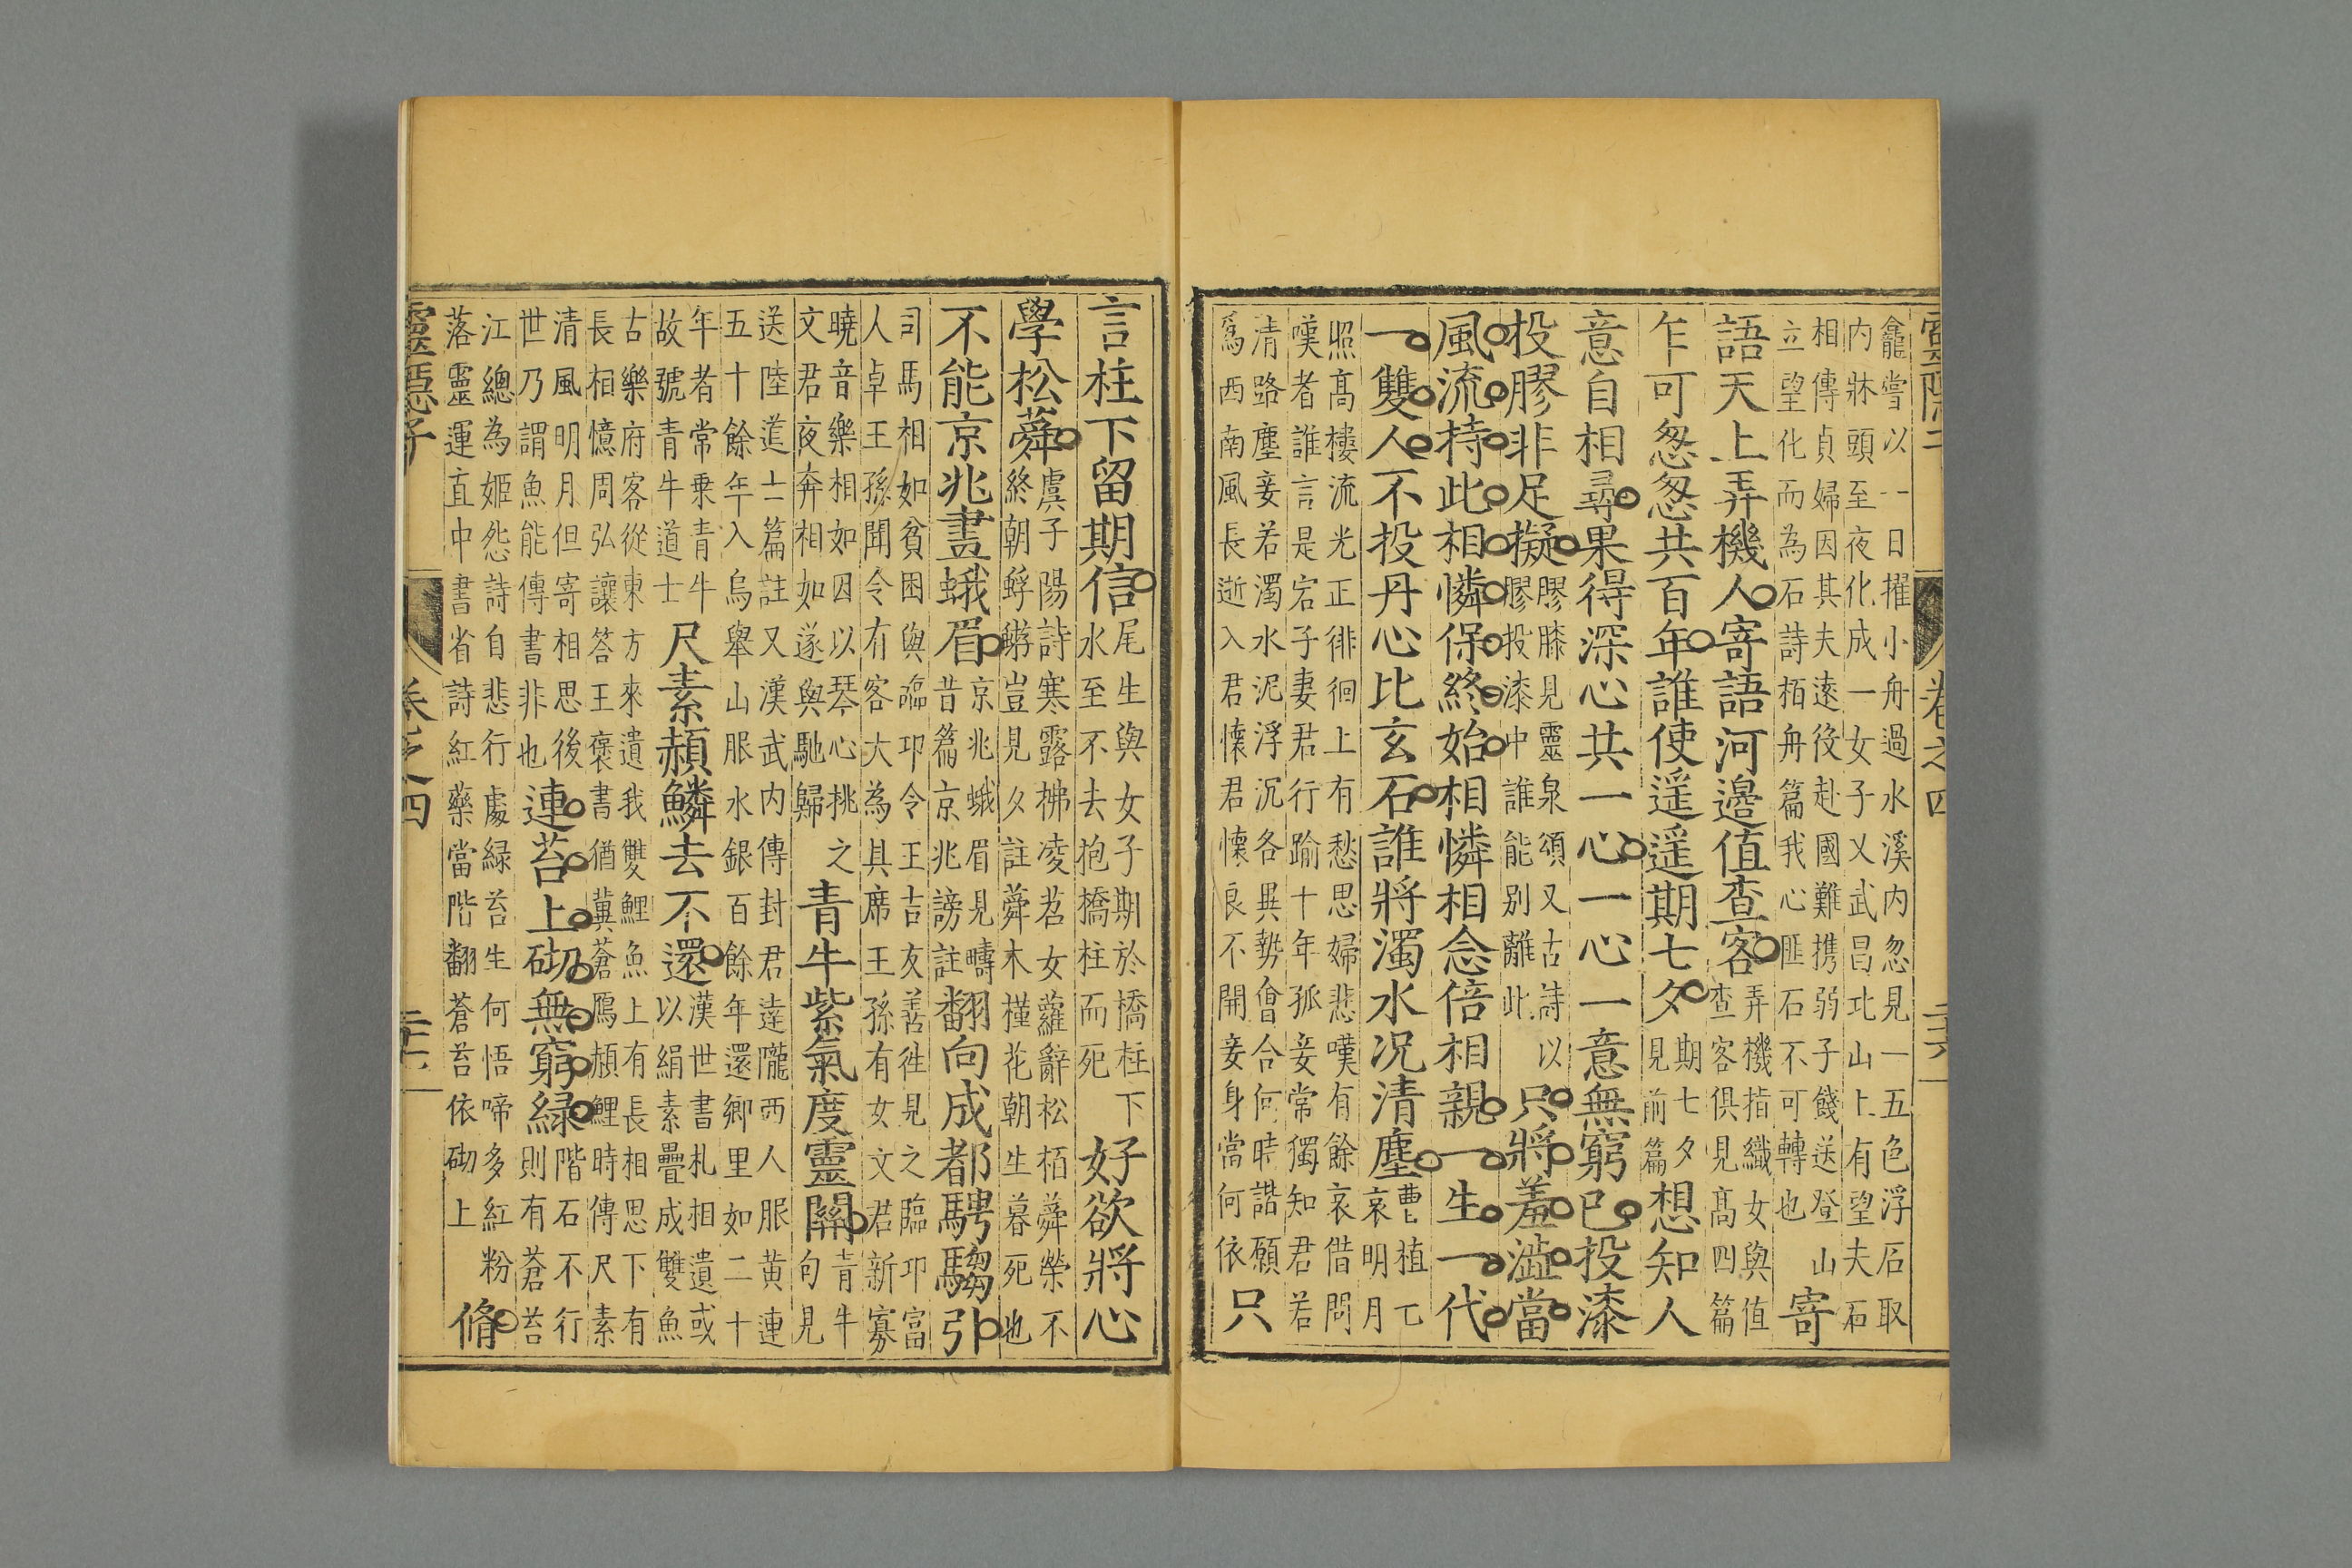 龕嘗以一日擢小舟過水溪内忽見一五色浮石取
内牀頭至夜化成一女子又武昌北山上有望夫石
相傳貞婦因其夫遠役赴國難携弱子餞送登山
立望化而為石詩栢舟篇我心匪石不可轉也
寄
語天上弄機人寄語河邊值查客
弄機指織女與值
查客俱見髙四篇
乍可怱怱共百年誰使遥遥期七夕
期七夕
見前篇
想知人
意自相尋果得深心共一心一心一意無窮已投漆
投膠非足擬
膠膝見靈泉頌又古詩以
膠投漆中誰能别離此
只將羞澁當
風流持此相憐保終始相憐相念倍相親一生一代
一雙人不投丹心比玄石誰將濁水况清塵
曹植七
哀明月
照髙樓流光正徘徊上有愁思婦悲嘆有餘哀借問
嘆者誰言是宕子妻君行踰十年孤妾常獨知君若
清路塵妾若濁水泥浮沉各異勢會合何時諧願
爲西南風長逝入君懐君懐良不開妾身當何依
只
言柱下留期信
尾生與女子期於橋柱下
水至不去抱橋柱而死
好欲將心
學松蕣
虞子陽詩寒露拂凌苕女蘿辭松栢蕣榮不
終朝蜉蝣豈見夕註蕣木槿花朝生暮死也
不能京兆畫蛾眉
京兆蛾眉見疇
昔篇京兆謗註
翻向成都騁騶引
司馬相如貧困與臨邛令王吉友善徃見之臨邛富
人卓王孫聞令有客大為具席王孫有女文君新寡
曉音樂相如因以琴心挑之
文君夜奔相如遂與馳歸
青牛紫氣度靈關
青牛
句見
送陸道士篇註又漢武内傳封君達隴西人服黄連
五十餘年入烏舉山服水銀百餘年還鄉里如二十
年者常乗青牛
故號青牛道士
尺素頳鱗去不還
漢世書札相遺或
以絹素疊成雙魚
古樂府客從東方來遺我雙鯉魚上有長相思下有
長相憶周弘讓答王褒書猶冀蒼鴈頳鯉時傳尺素
清風明月但寄相思後
世乃謂魚能傳書非也
連苔上砌無窮緑
階石不行
則有蒼苔
江總為姬怨詩自悲行處緑苔生何悟啼多紅粉
落靈運直中書省詩紅藥當階翻蒼苔依砌上
脩
靈隱子
卷之四